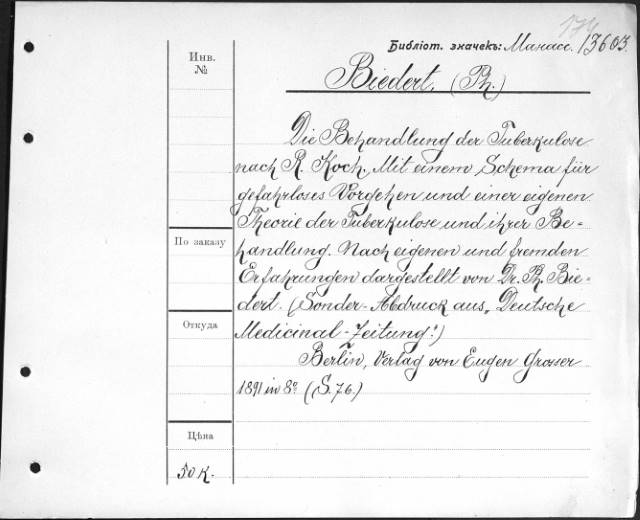 174
Библіот. значекъ: Манасс. 13603.
Инв.
№
Biedert, (Ph.)
Die Behandlung der Tuberkulose
nach R. Koch. Mit einem Schema für
gefahrloses Vorgehen und einer eigenen
Theorie der Tuberkulose und ihrer Be-
По заказу
handlung. Nach eigenen und fremden
Erfahrungen dargestellt von Dr. Ph. Bie-
dert. (Sonder-Abdruck aus „Deutsche
Откуда
Medicinal-Zeitung“)
Berlin, Verlag von Eugen Grosser
1891 in 8º (S. 76.)
Цѣна
50 к.